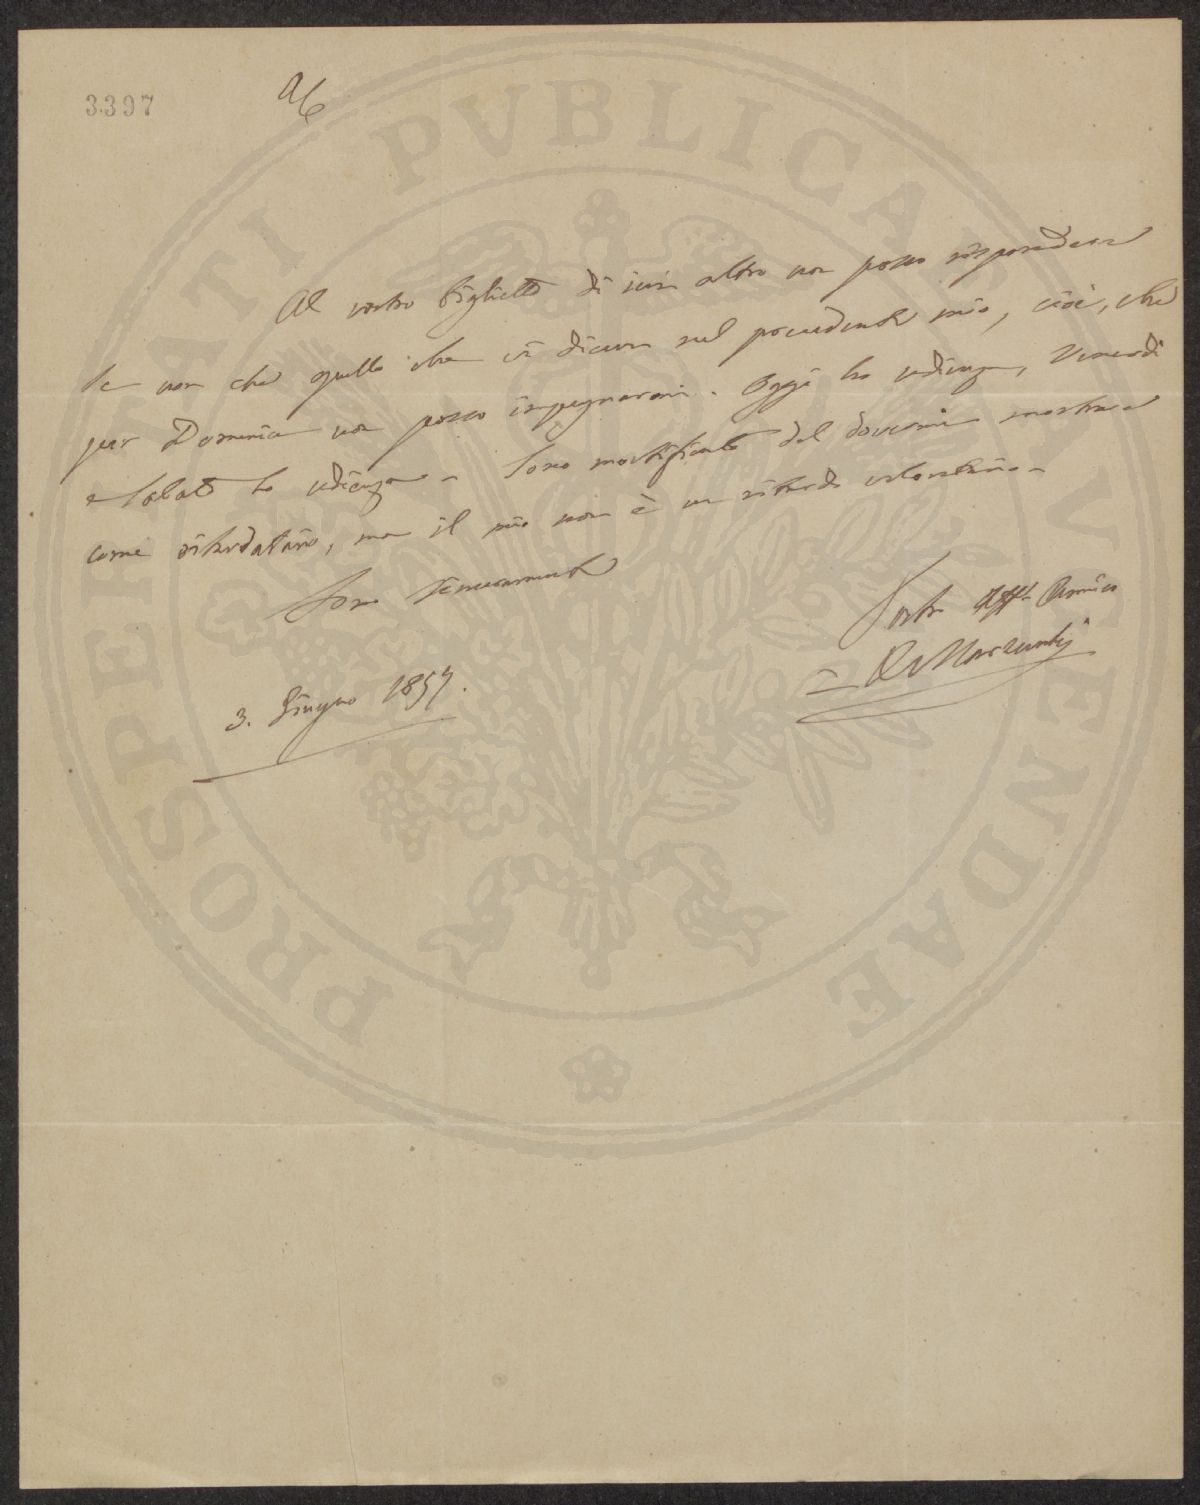 3397
AC
Al vostro biglietto di ieri altro non posso rispondere
se non che quello che vi diceva nel precedente mio, cioè, che
per Domenica non posso impegnarmi. Oggi ho udienza, Venerdì
e Sabato ho udienza - Sono mortificato del dovermi mostrare
come ritardatario, ma il mio non è un ritardo volontario -
Sono sinceramente
Vostro Affo Amico
3. Giugno 1857.
PROSPERITATI PVBLICAE AVGENDAE